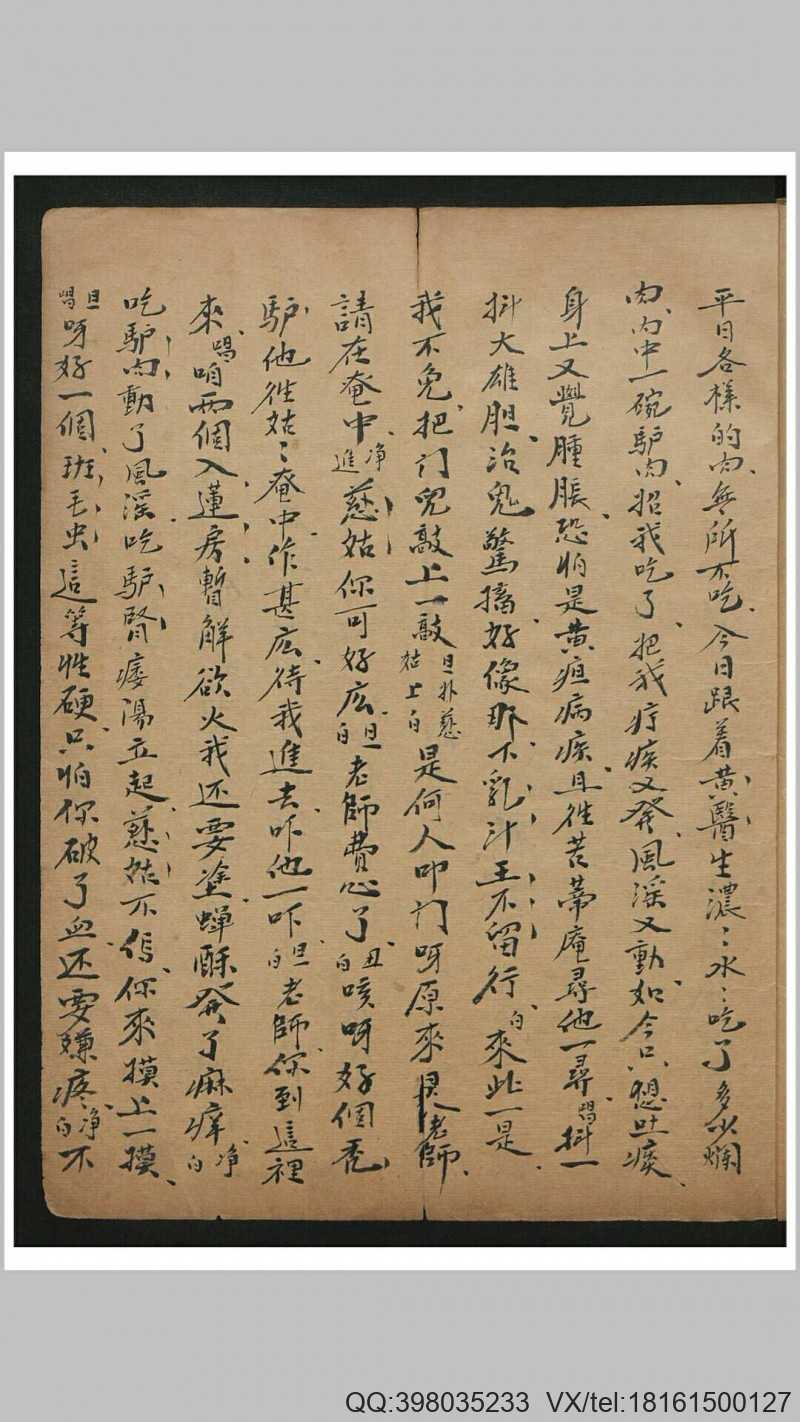 平日各樣的肉無所不吃今日跟着黃醫生濃〻水〻吃了多少爛
肉肉中一碗驴肉招我吃了把我疔疾又發風淫又動如今只想吐痰
身上又覺腫脹恐怕是黃疸病疾且往苦蒂庵尋他一尋唱抖一
抖大雄胆治鬼驚搐好像那不乳汁王不留行白來此一是
我不免把门兒敲上一敲旦扑慈姑上白是何人叩门呀原來是老師
請在庵中净進慈姑你可好庅旦白老師費心了丑白咳呀好個秃
驴他往姑〻庵中作甚庅待我進去吓他一吓旦白老師你到這裡
來唱咱两個入蓮房暫解欲火我还要塗蟬酥發了麻痒净白
吃驴肉動了風淫吃驴腎痿陽立起慈姑不信你來摸上一摸
旦唱呀好一個班毛虫這等性硬只怕你破了血还要嫌疼净白不
QQ:398035233 VX/tel:18161500127